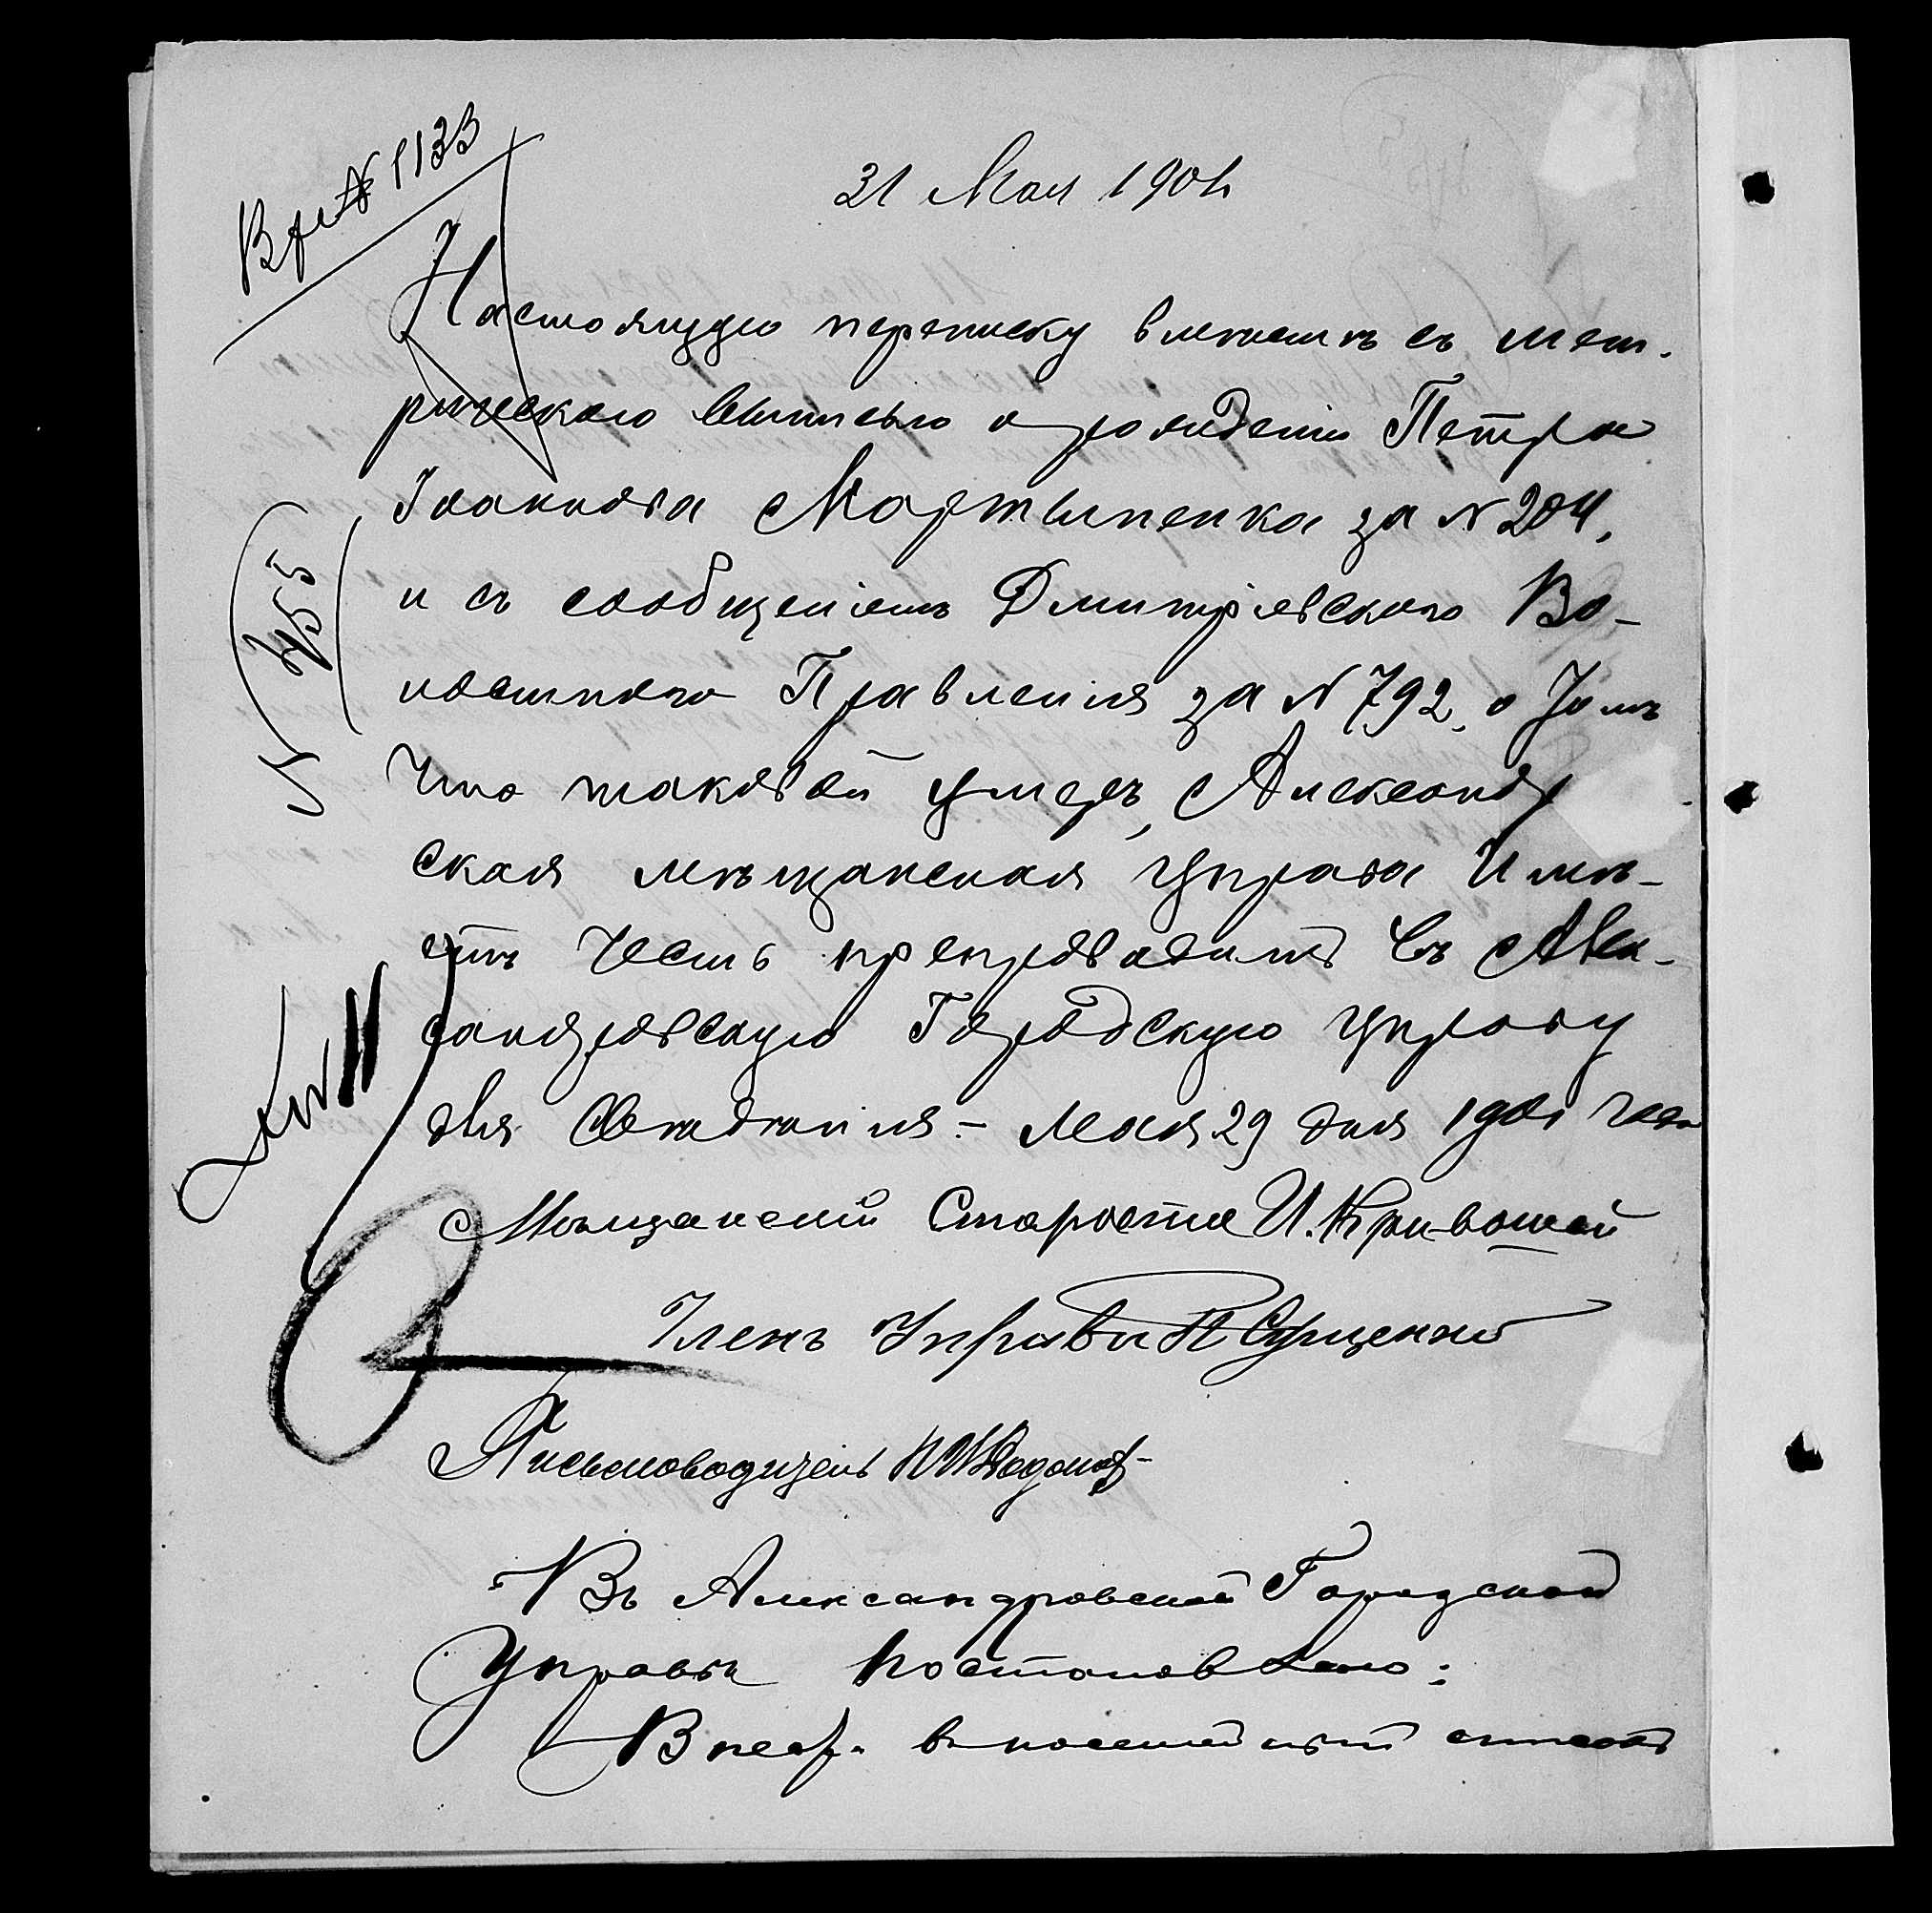 Вх № 1133
31 Мая 1901 г.
Настоящую переписку вместѣ съ мет-
рическою выписью о рожденіи Петра
Іоаннова Мартыненка за № 204,
и съ сообщеніемъ Дмитріевского Во-
лостного Правленія за № 792, о томъ
что таковой умеръ, Александр
ская мѣщанская управа имѣ-
етъ честь препроводить въ Алек-
сандровскую Городскую управу
для свѣдѣнія. – Мая 29 дня 1901 года
Мѣщанскій Староста И. Кривошей
Членъ Управы П Сущенко
Письмоводитель
Въ Александровской Городской
Управѣ постановлено:
списокъ